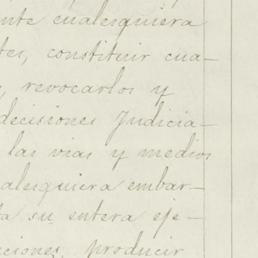 nte cualesquiera
tes, constituir cua-
, revocarlos y
decisiones Judicia-
las vias y medios
alesquiera embar-
ta su entera eje-
ciones, producir